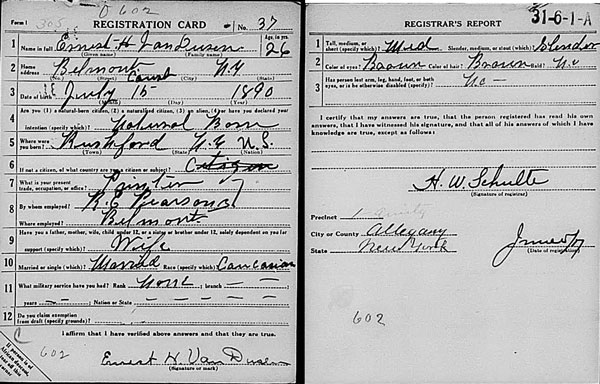 Form 1 305 0 602 REGISTRATION CARD No. 37
1 Name in full Ernest H VanDusen Age, in yrs. 26
(Given name) (Family name)
2 Home address Belmont N Y
(No.) (Street) (City) (State)
3 Date of birth July 15 1890
(Month) (Day) (Year)
4 Are you (1) a natural-born citizen, (2) a naturalized citizen, (3) an alien, (4) or have you declared your
intention (specify which)? Natural Born
5 Where were you born? Rushford N.Y. U.S.
(Town) (State) (Nation)
6 If not a citizen, of what country are you a citizen or subject? Citizen
7 What is your present trade, occupation, or office?
8 By whom employed?
Where employed? Belmont
9 Have you a father, mother, wife, child under 12, or a sister or brother under 12, solely dependent on you for
support (specify which)? Wife
10 Married or single (which)? Married Race (specify which)? Caucasian
11 What military service have you had? Rank None ; branch —
years — ; Nation or State —
12 Do you claim exemption
from draft (specify grounds)?
I affirm that I have verified above answers and that they are true.
602
Ernest H. VanDusen
(Signature or mark)
If person is of African descent,
REGISTRAR'S REPORT 31-6-1-A
1 Tall, medium, or short (specify which)? Med Slender, medium, or stout (which)? Slender
2 Color of eyes? Brown Color of hair? Brown Bald? No
3 Has person lost arm, leg, hand, foot, or both
eyes, or is he otherwise disabled (specify)? No —
I certify that my answers are true, that the person registered has read his own
answers, that I have witnessed his signature, and that all of his answers of which I have
knowledge are true, except as follows:
H. W. Schulte
(Signature of registrar)
Precinct 1
City or County Allegany
State New York
(Date of registration)
602